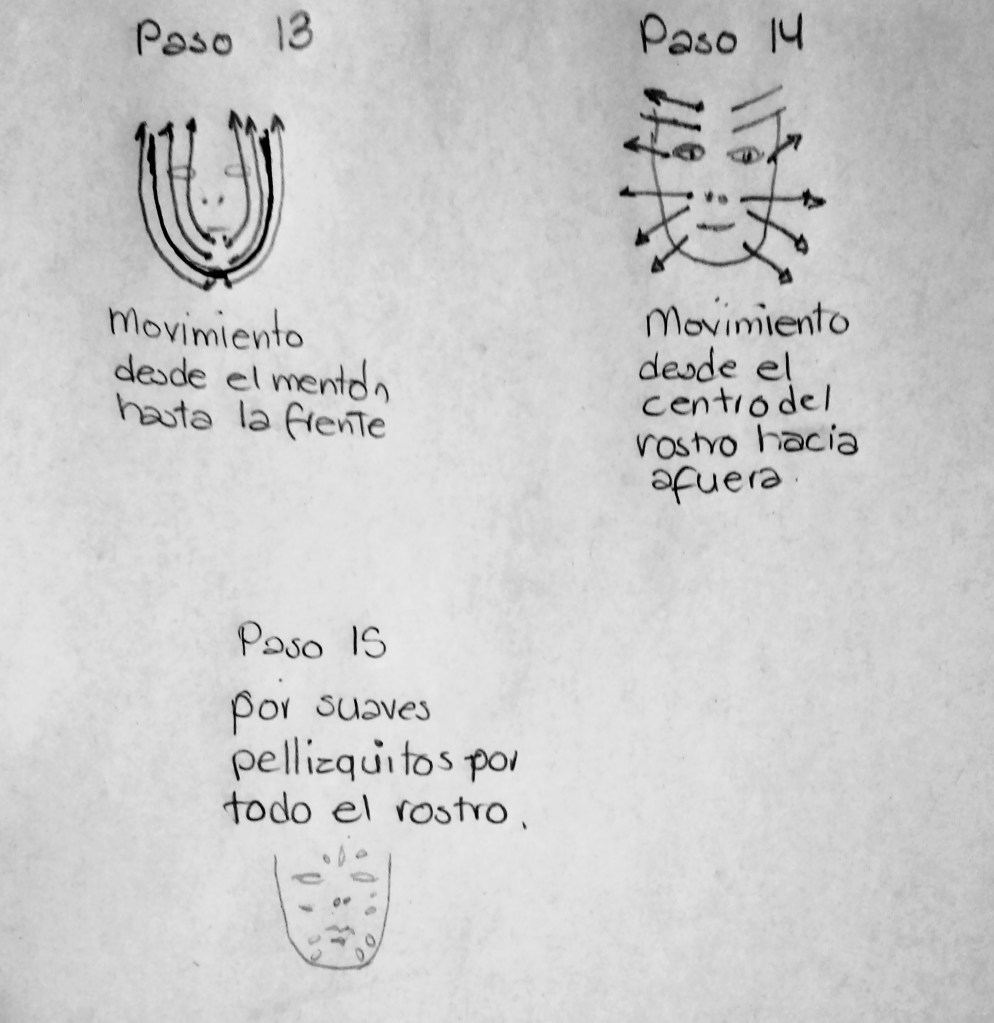 Paso 13
Movimiento
desde el mentón
hasta la frente
Paso 14
Movimiento
desde el
centro del
rostro hacia
afuera.
Paso 15
por suaves
pellizquitos por
todo el rostro.